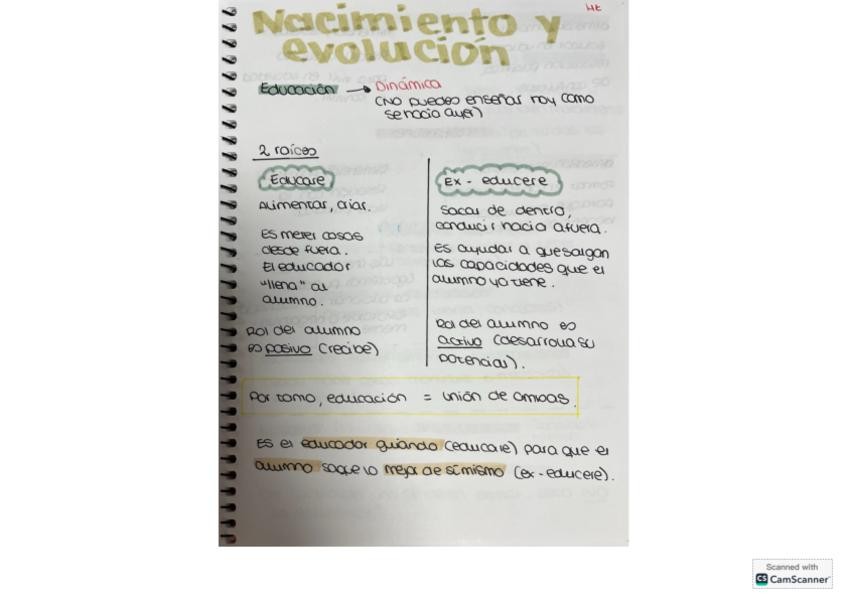 HE
Nacimiento y
evolución
Educación → Dinámica
(No puedes enseñar hoy como
se hacía ayer)
2 raíces
Educare
Alimentar, criar.
Es meter cosas
desde fuera.
El educador
"llena" al
alumno.
Rol del alumno
es pasivo (recibe)
Ex - educere
Sacar de dentro,
conducir hacia afuera.
Es ayudar a que salgan
las capacidades que el
alumno ya tiene.
Rol del alumno es
activo (desarrolla su
potencial).
Por tanto, educación = unión de ambas.
Es el educador guiando (educare) para que el
alumno saque lo mejor de sí mismo (ex-educere).
Scanned with
CS CamScanner